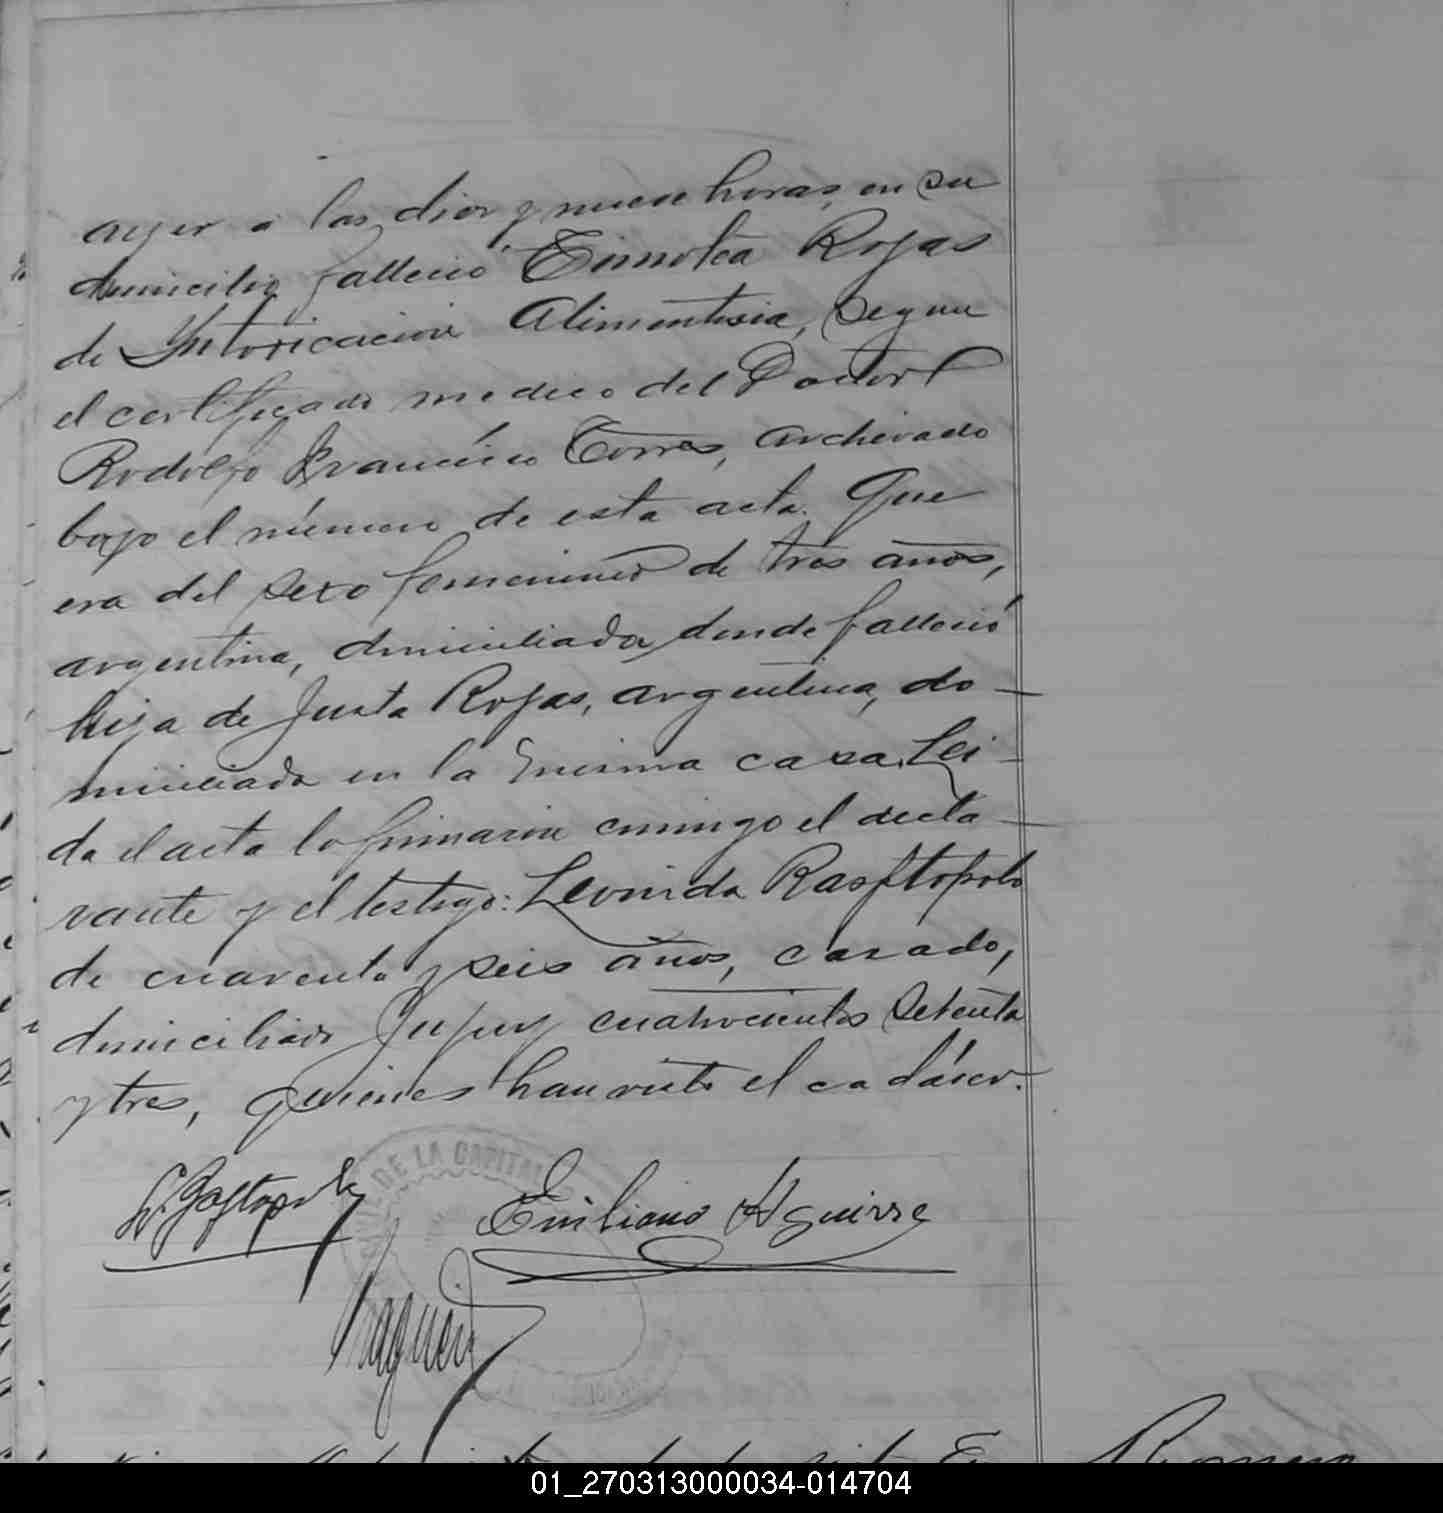 ayer a las diez y nueve horas, en su
domicilio falleció Timotea Rojas
de Intoxicación Alimenticia, segun
el certificado medico del Doctor
Rodolfo Francisco Torres, archivado
bajo el número de esta acta. Que
era del sexo femenino de tres años,
argentina, domiciliada donde falleció
hija de Justa Rojas, argentina, do-
miciliada en la misma casa. Lei-
da el acta la firmaron conmigo el decla-
rante y el testigo: Leonida Raftopolo
de cuarenta y seis años, casado,
domiciliado Jujuy cuatrocientos setenta
y tres, quienes han visto el cadáver.
DE LA CAPITAL
Emiliano Aguirre
01_270313000034-014704